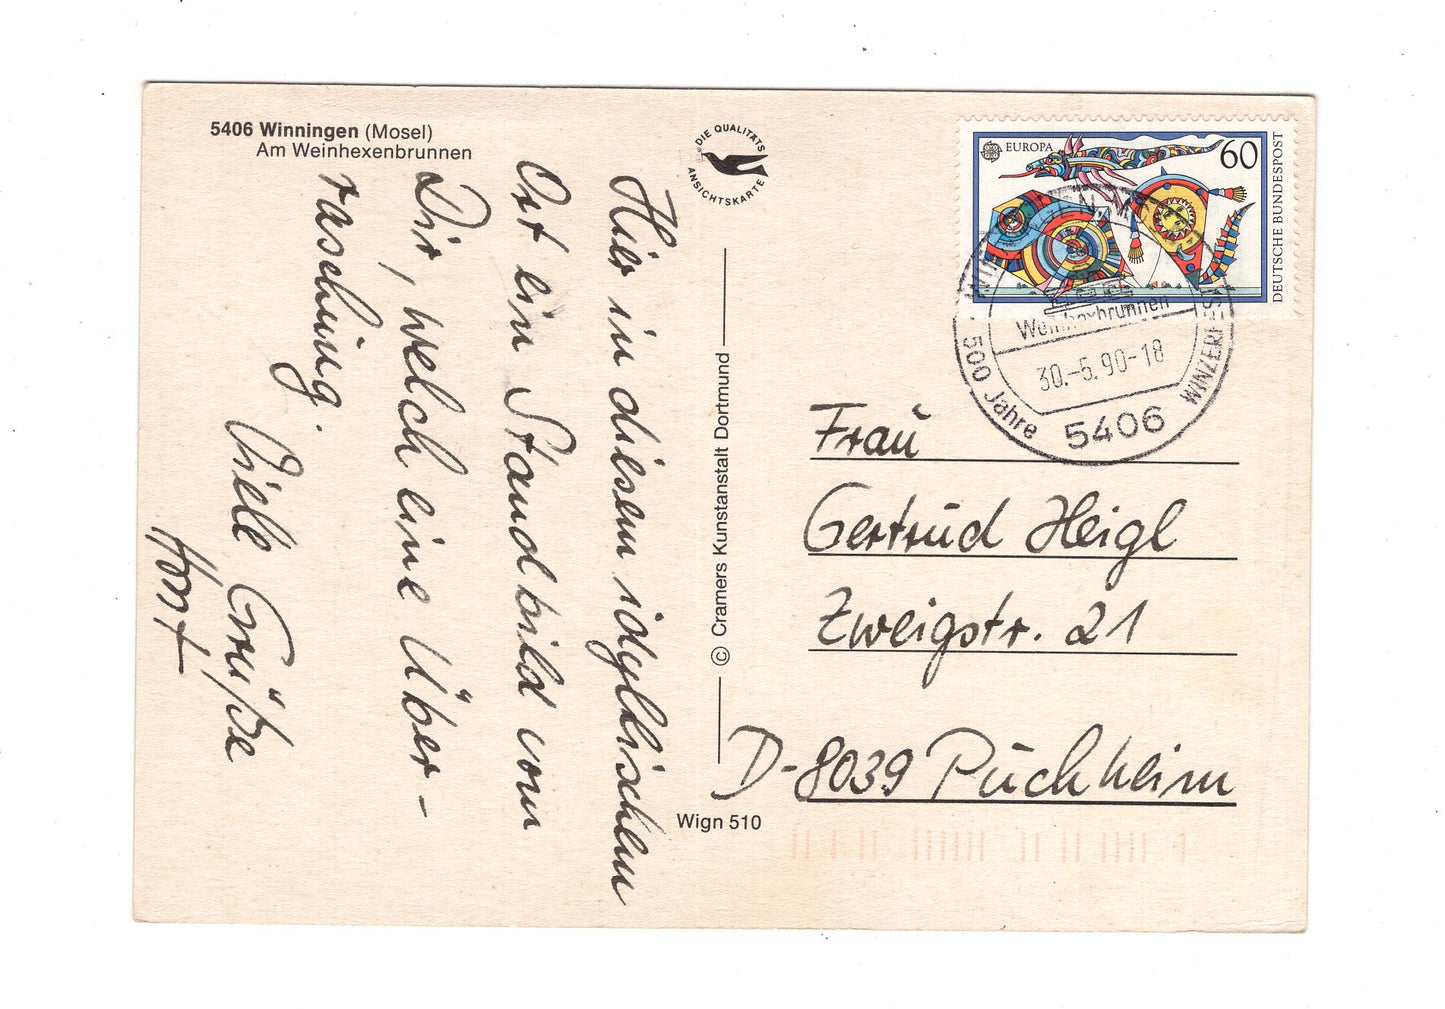 5406 Winningen (Mosel)
Am Weinhexenbrunnen
DIE QUALITÄTS
ANSICHTSKARTE
Hier in diesem idyllischem
Ort ein Standbild von
Dir, welch eine Über-
raschung.
Viele Grüße
Horst
© Cramers Kunstanstalt Dortmund
Wign 510
EUROPA
60
DEUTSCHE BUNDESPOST
Weinhexbrunnen
30.-5.90-18
500 Jahre
5406
WINZERFEST
Frau
Gertrud Heigl
Zweigstr. 21
D-8039 Puchheim